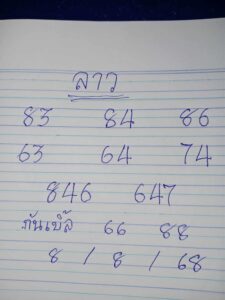 ลาว
83 84 86
63 64 74
846 647
กันเบิ้ล 66 88
8 / 8 / 68